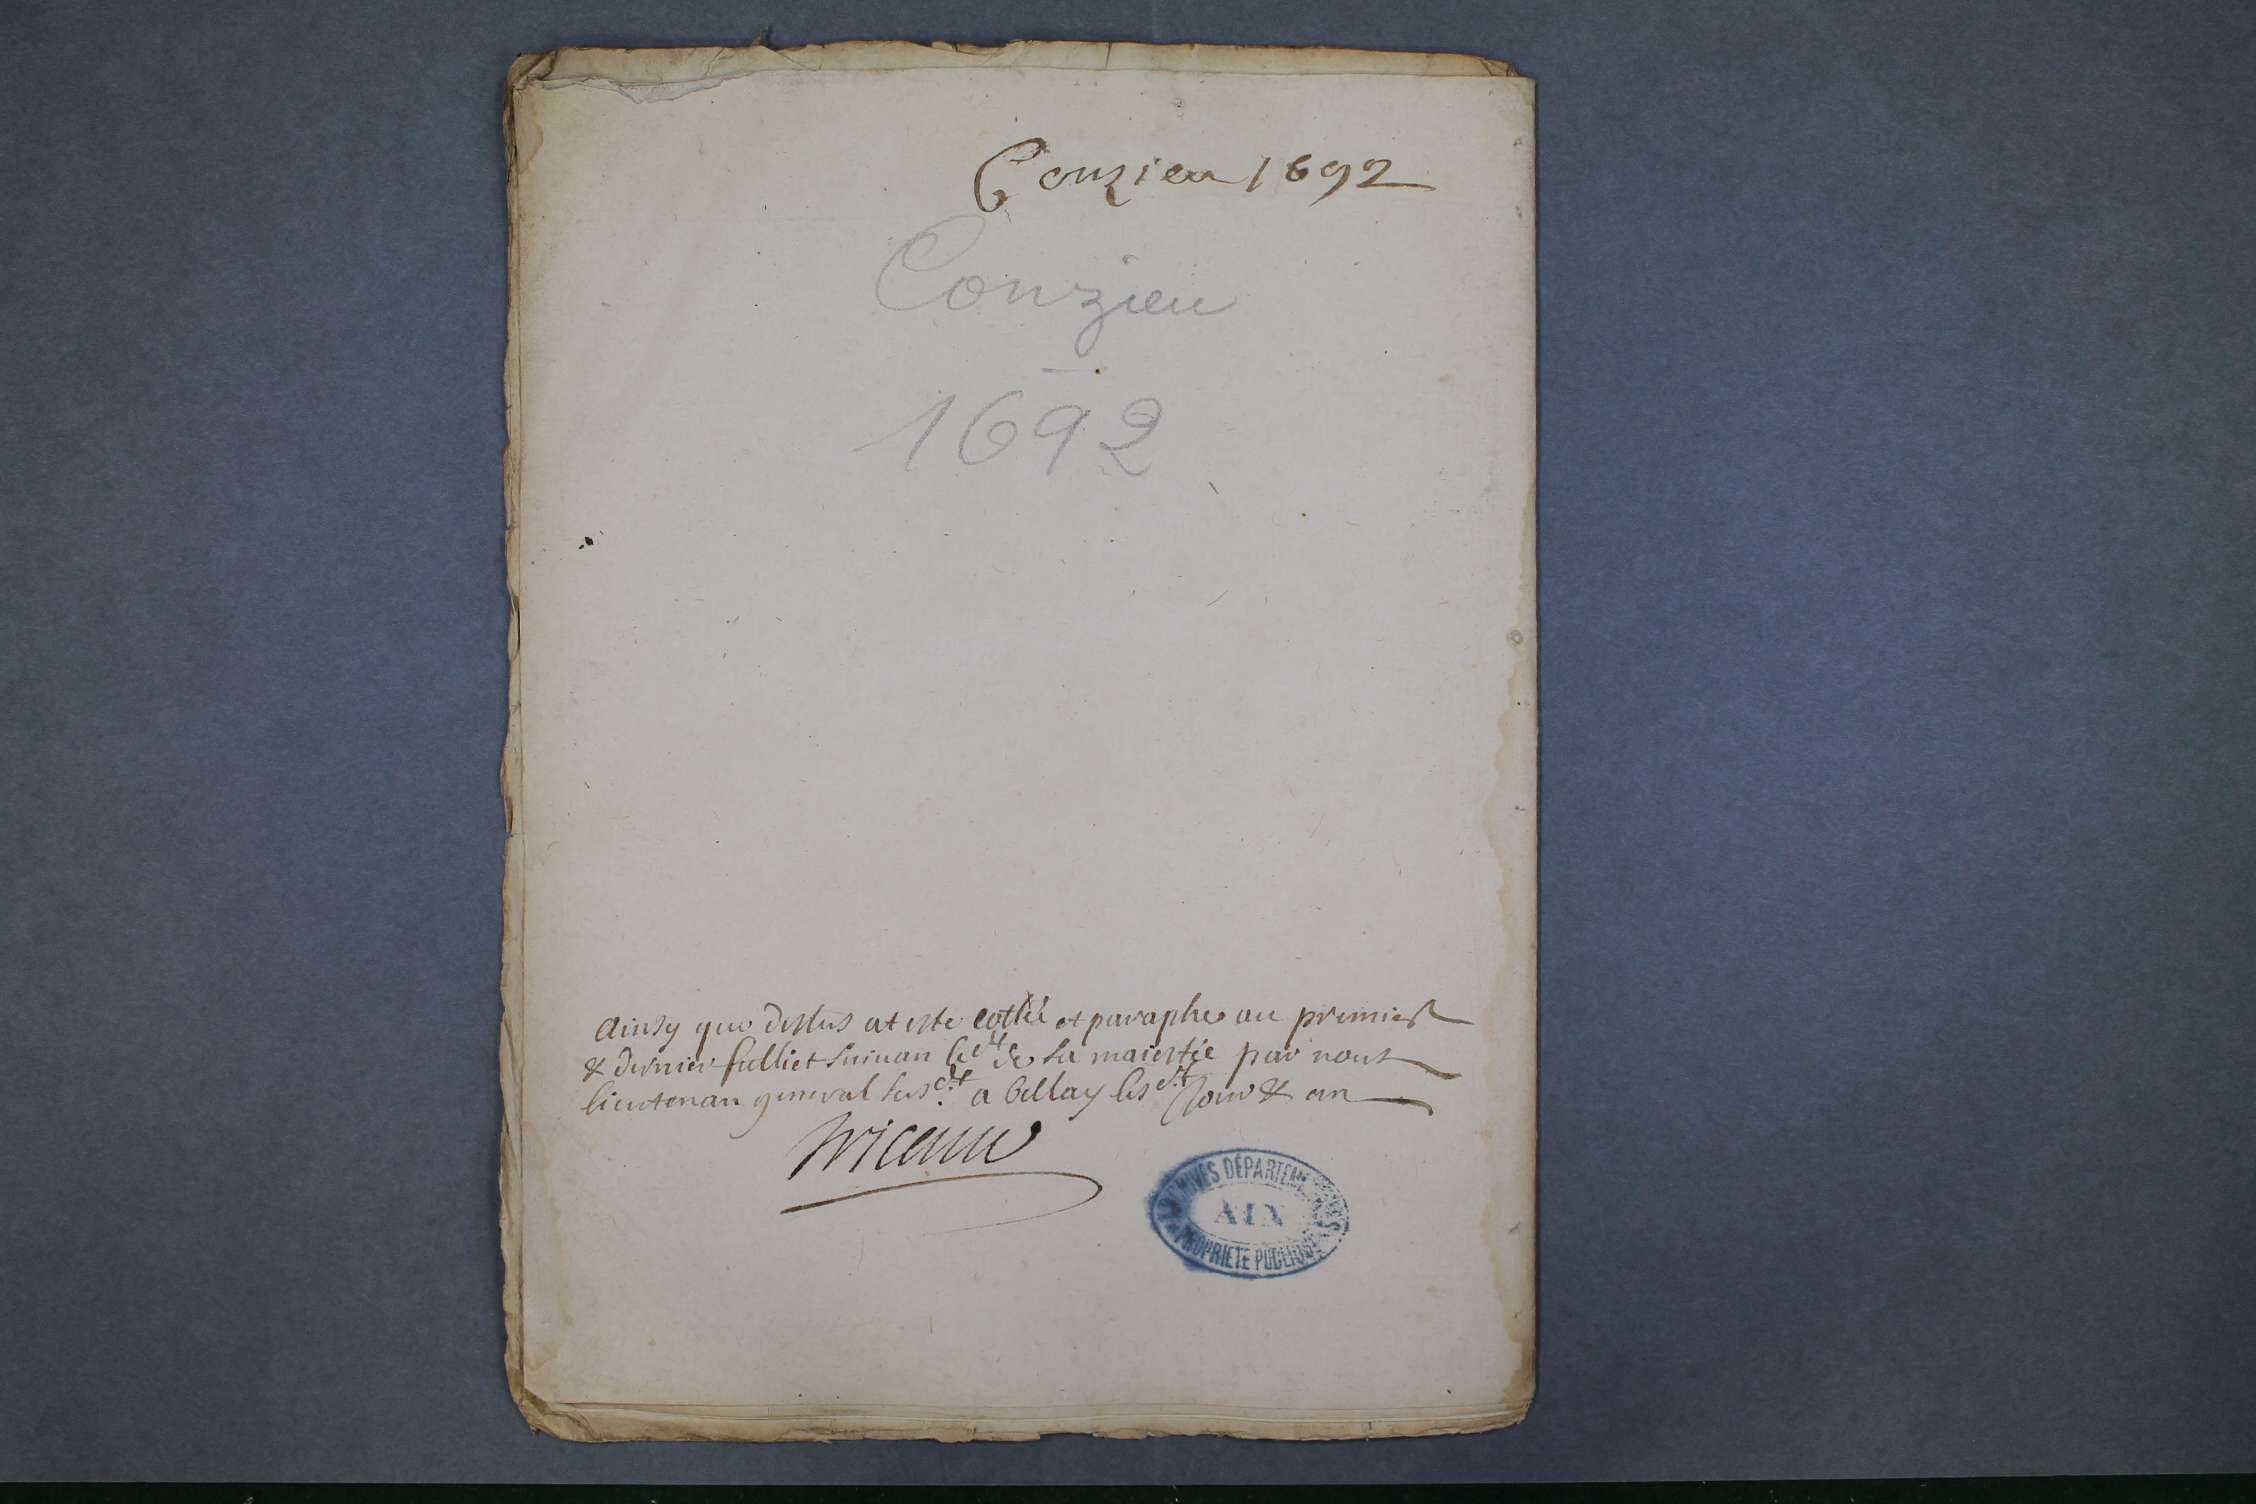 Conzieu 1692
Conzieu
1692
Ainsy que dessus at este cottéé et paraphe au premier
& dernier fulliet suivan l'ed.it de sa maiestée par nous
lieutenan general sus.dit a Bellay les.dit Jour & an
ARCHIVES DÉPARTEMENTALES
AIN
PROPRIETE PUBLIQUE